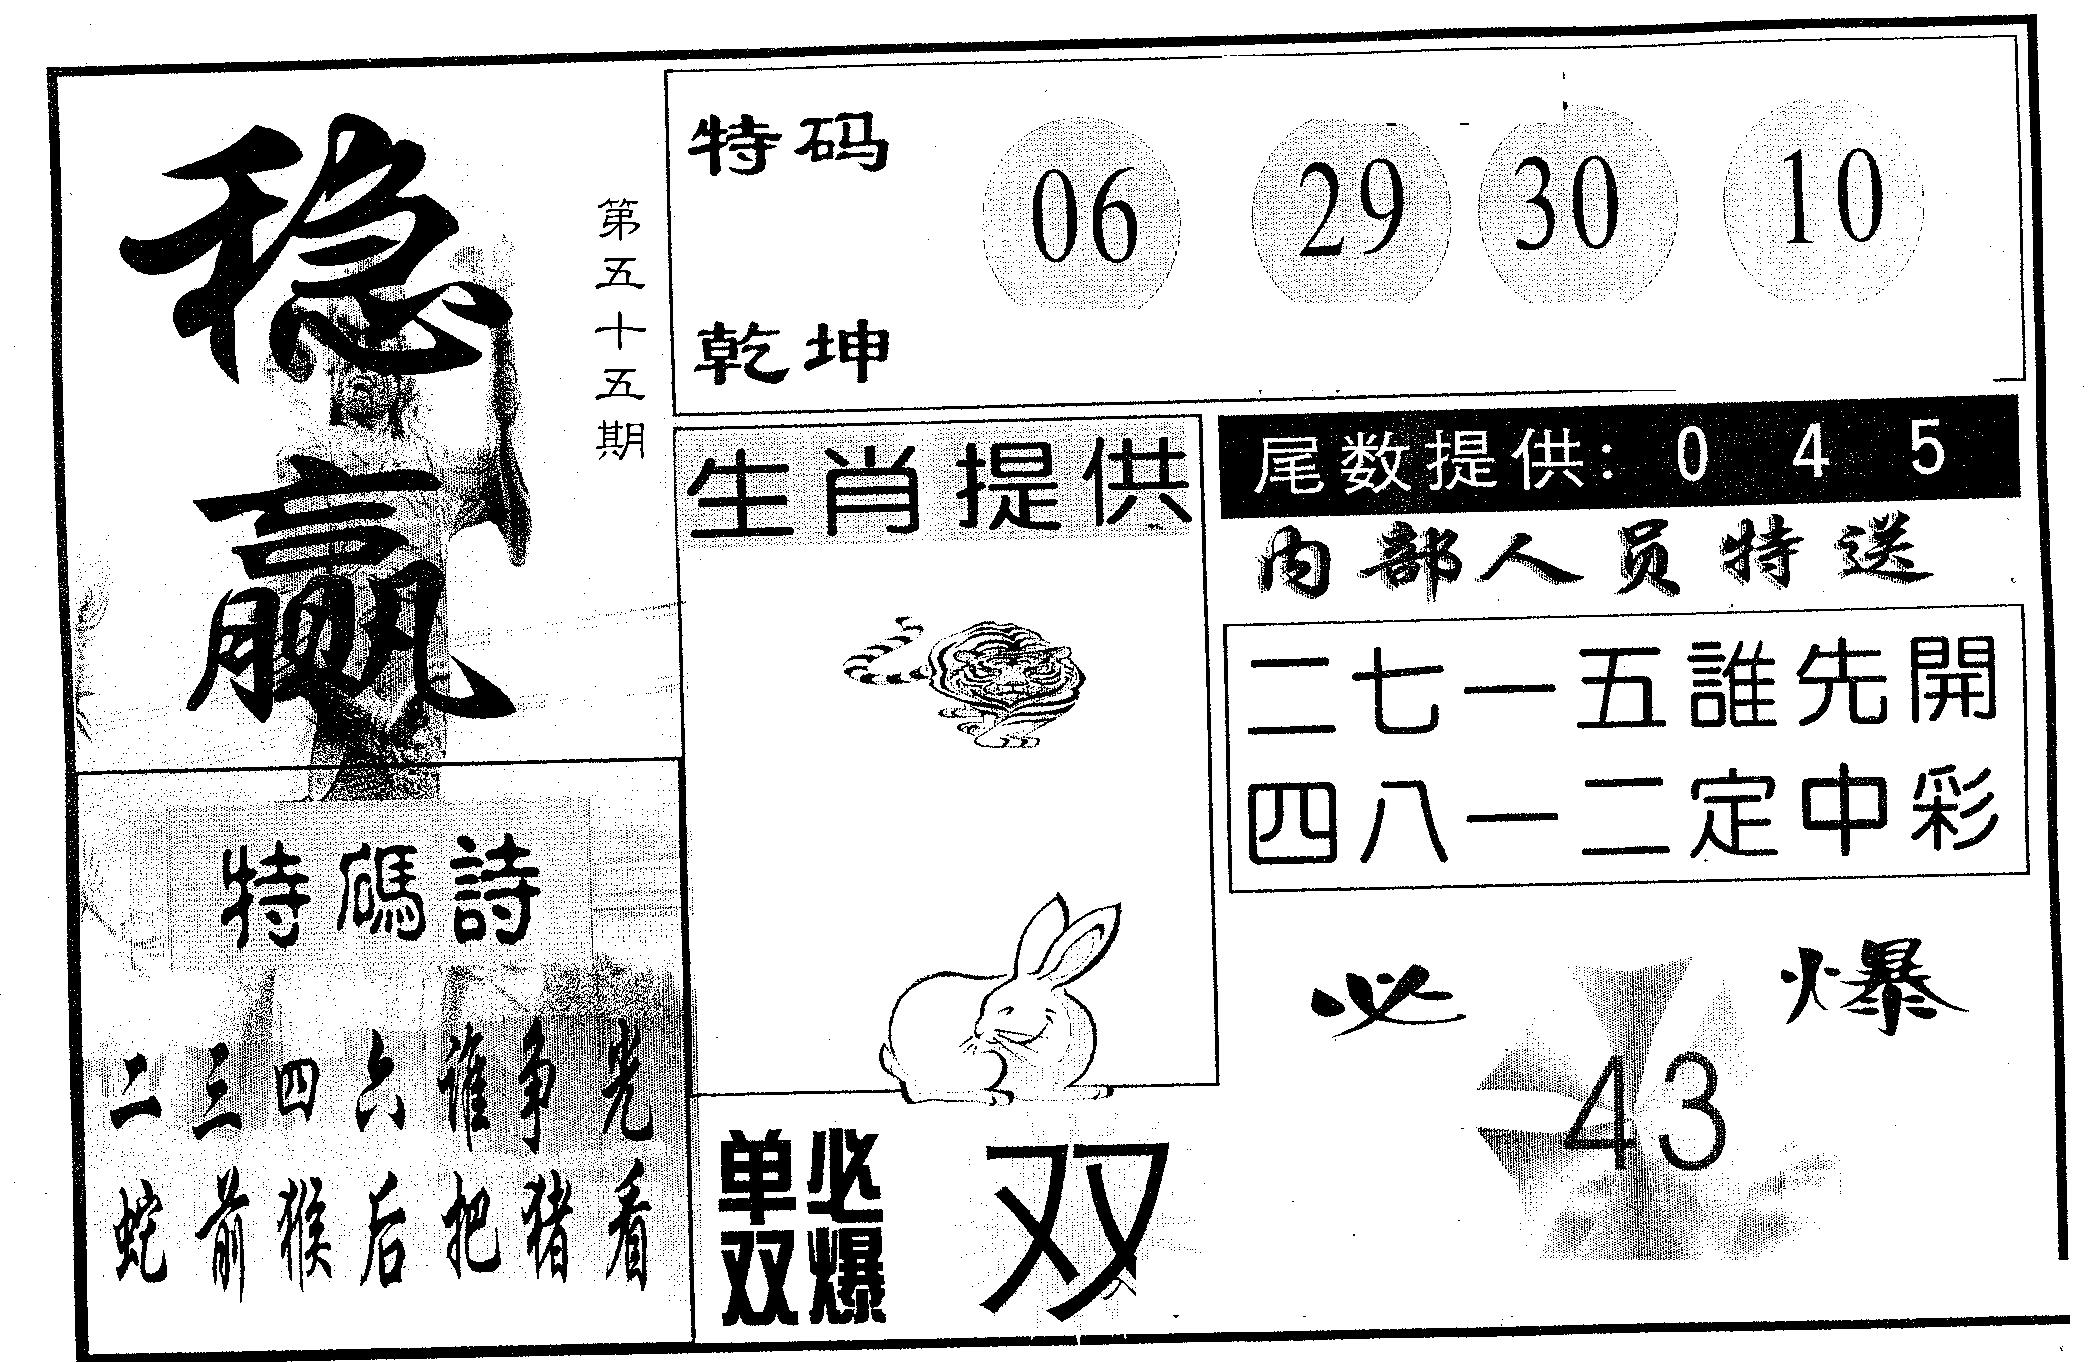 稳赢
第五十五期
特码
乾坤
06 29 30 10
生肖提供
尾数提供: 0 4 5
内部人员特送
二七一五誰先開
四八一二定中彩
特碼詩
二三四六谁争先
蛇前猴后把猪看
单必
双爆
双
必爆
43